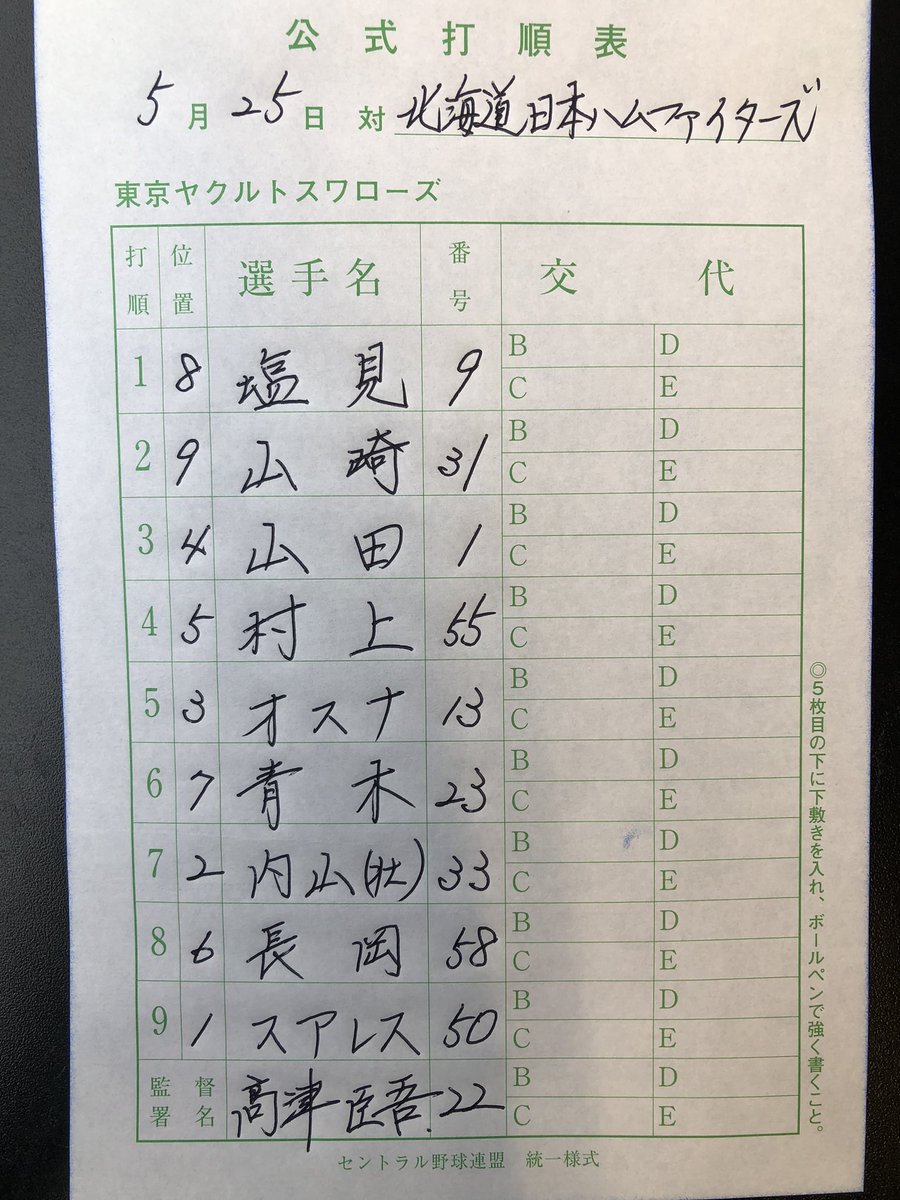 公式打順表
5月25日 対 北海道日本ハムファイターズ
東京ヤクルトスワローズ
打順 位置 選手名 番号 交代
1 8 塩見 9 B D
C E
2 9 山崎 31 B D
C E
3 4 山田 1 B D
C E
4 5 村上 55 B D
C E
5 3 オスナ 13 B D
C E
6 7 青木 23 B D
C E
7 2 内山(壮) 33 B D
C E
8 6 長岡 58 B D
C E
9 1 スアレス 50 B D
C E
監督署名 高津臣吾 22 B D
C E
◎5枚目の下に下敷きを入れ、ボールペンで強く書くこと。
セントラル野球連盟 統一様式